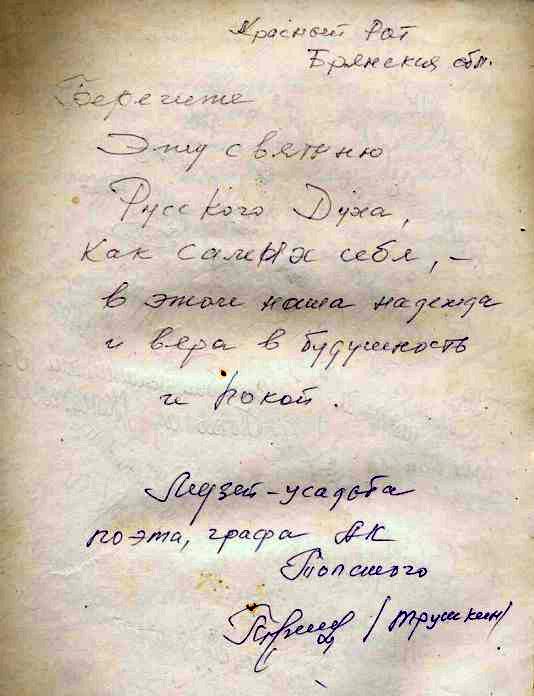 Красный Рог
Брянская обл.
Берегите
Эту святыню
Русского Духа,
Как самих себя, –
в этом наша надежда
и вера в будущность
и покой.
Музей-усадьба
поэта, графа АК
Толстого
/Трушкин/